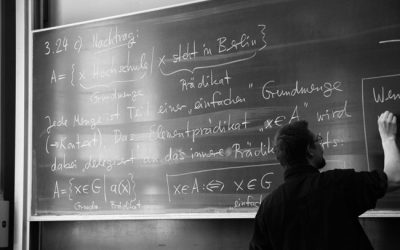 3.24 c) Nachtrag:
A = { x Hochschule | x steht in Berlin }
Grundmenge Prädikat
Jede Menge ist Teil einer „einfachen" Grundmenge
(→ Kontext). Das Elementprädikat „x∈A" wird
dabei „delegiert" an das innere Prädikat rts.
A = { x∈G | a(x) }
Grundm. Prädikat
x∈A :⇔ x∈G
einfach
Wenn